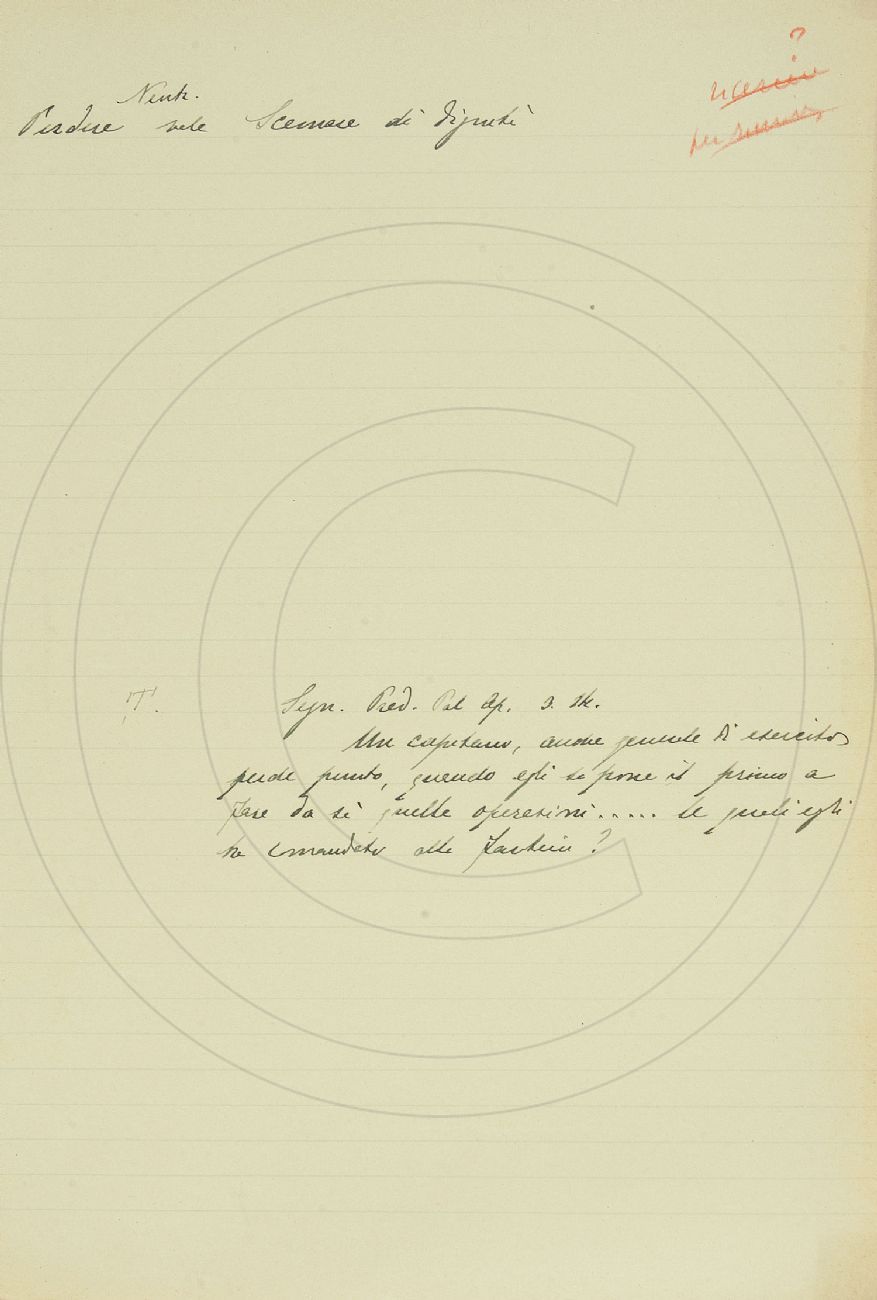 ?
Neutr.
Perdere vale Scemare di dignità
T. Segn. Pred. Pal. Ap. 2. 14.
Un capitano, anche generale di esercito
perde punto, quando egli si pone il primo a
fare da sè quelle operazioni..... le quali egli
ha comandato alle fanterie?